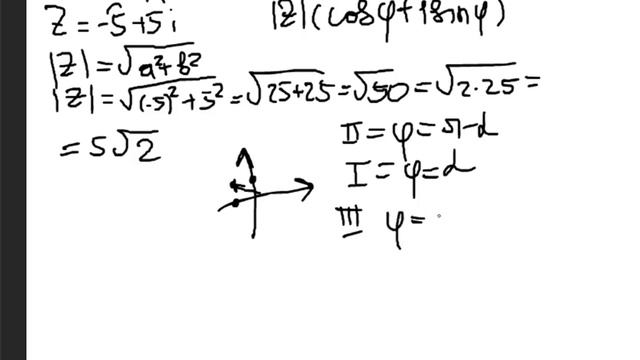 Z = -5+5i
|Z|(cosφ+isinφ)
|Z|=√a²+b²
|Z|=√(-5)²+5²=√25+25=√50=√2·25=
=5√2
II=φ=π-α
I=φ=α
III φ=